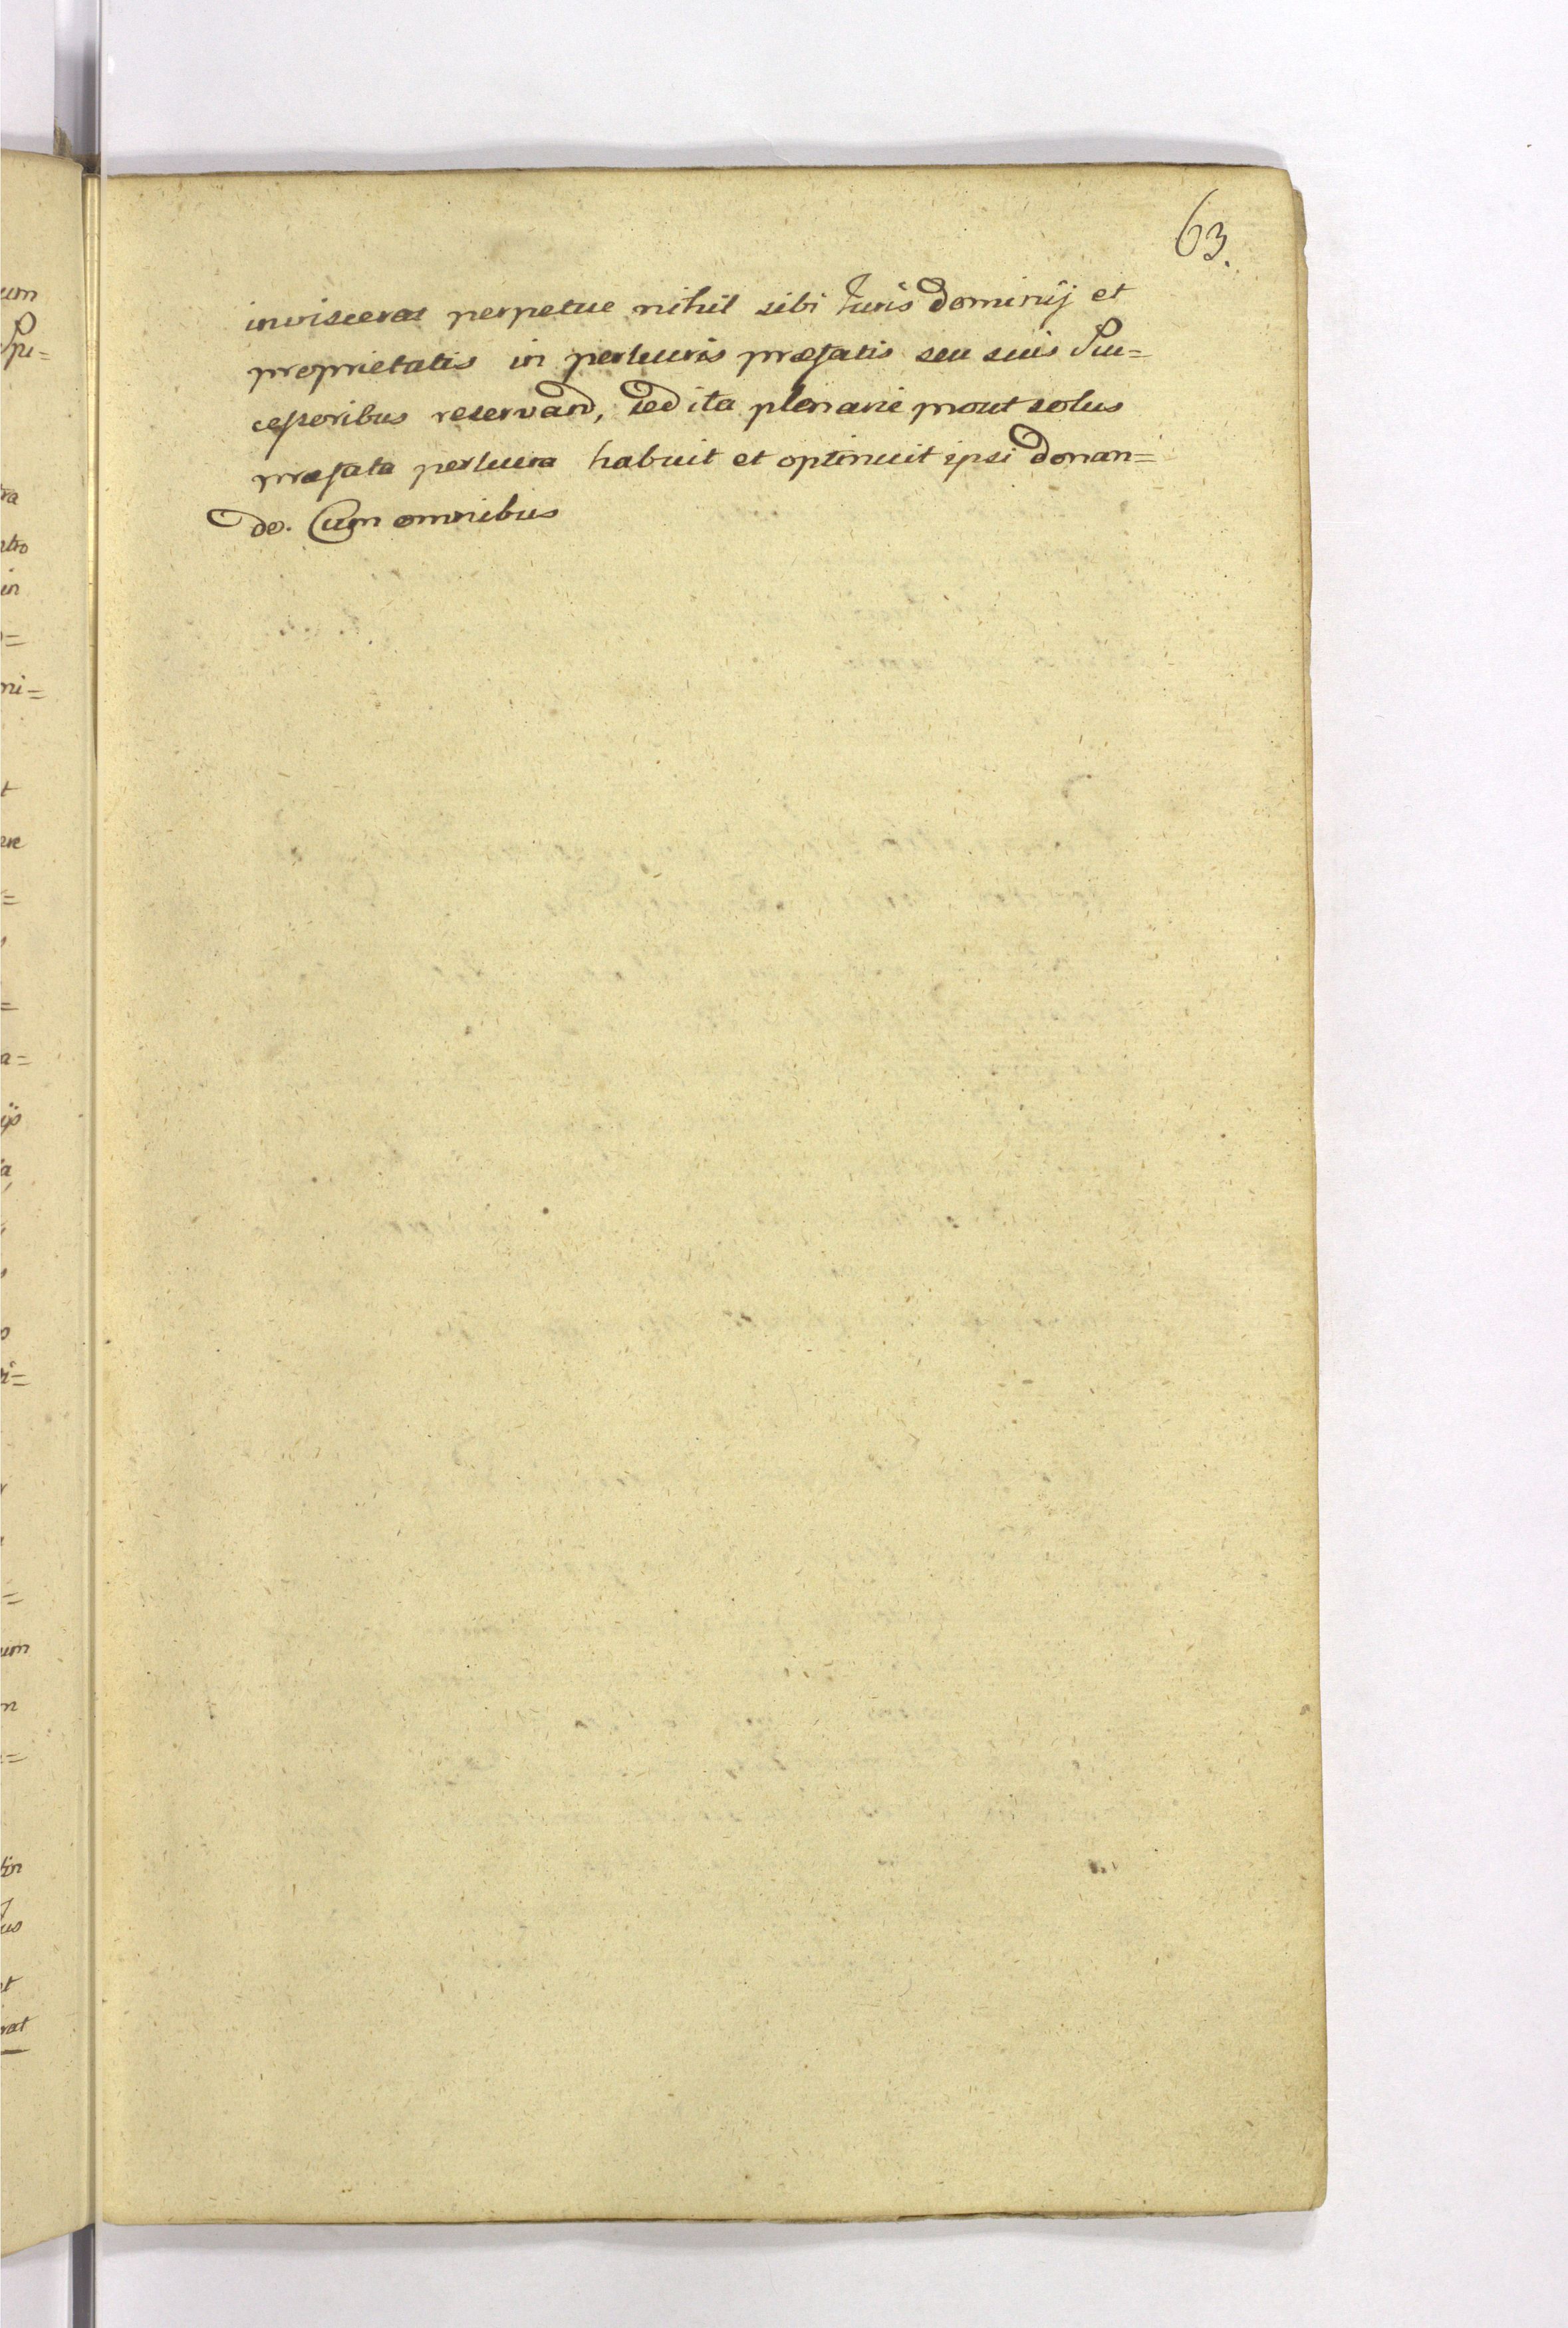 63.
inviscerat perpetue nihil sibi Juris dominij et
proprietatis in pertuuris præfatis seu suis Suc=
cessoribus reservand, sed ita plenarie prout solus
præfata pertuura habuit et optinuit ipsi donan=
do. Cum omnibus